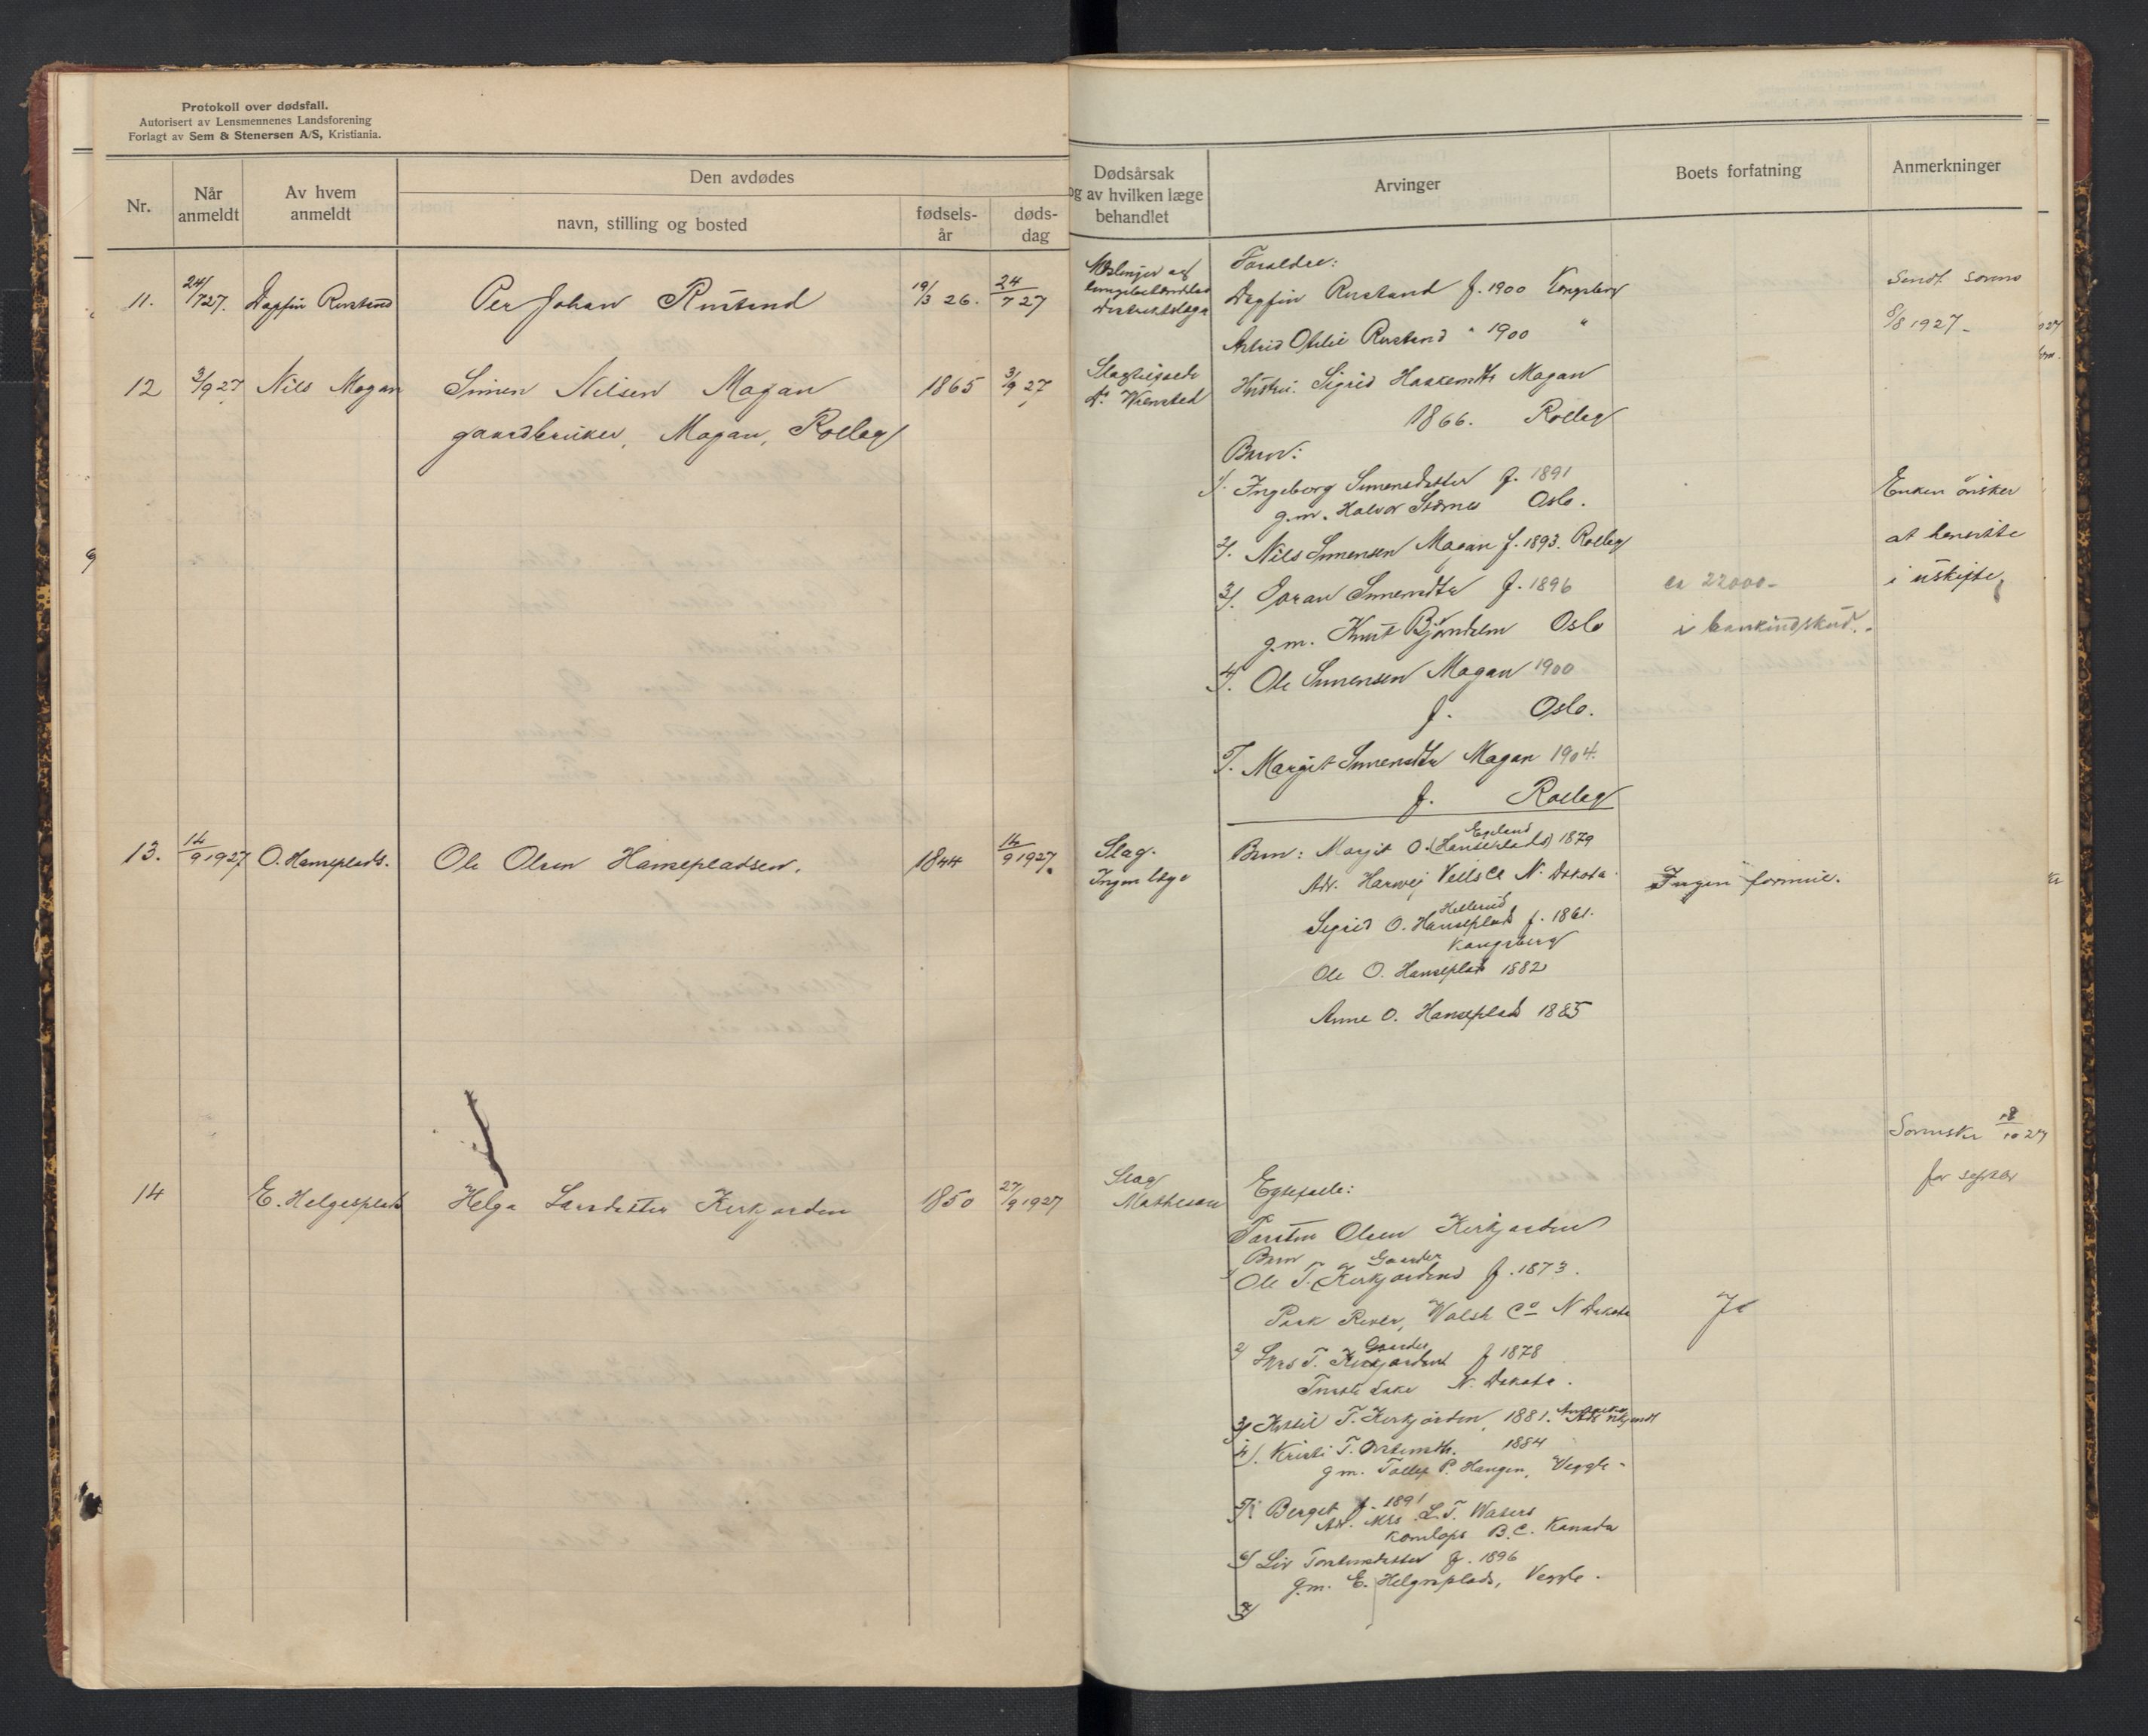 Protokoll over dødsfall.
Autorisert av Lensmennenes Landsforening
Forlagt av Sem & Stenersen A/S, Kristiania.
Nr.
Når anmeldt
Av hvem anmeldt
Den avdødes
navn, stilling og bosted
fødsels-år
døds-dag
Dødsårsak og av hvilken læge behandlet
Arvinger
Boets forfatning
Anmerkninger
11. 24/7 27. Dagfin Rustand Per Johan Rustand 19/3 26. 24/7 27
Meslinger og
Forældre:
Dagfin Rustand f. 1900 Kongsberg
Astrid Otilie Rustand " 1900 "
Sendt soren
5/8 1927-
12 3/9 27 Nils Magan Simen Nilsen Magan 1865 3/9 27
gaardbruker, Magan, Rolleg
Hustru: Sigrid Haakensdtr Magan
1866. Rolleg
Barn:
1/. Ingeborg Simensdatter f. 1891
g.m. Halvor Oslo.
2/. Nils Simensen Magan f. 1893. Rolleg
3/. Joran Simensdtr f. 1896
g.m. Knut Bjørndalen Oslo
4/. Ole Simensen Magan 1900
f. Oslo.
5/. Margit Simensdtr Magan 1904.
f. Rolleg
ca 22000-
i bankindskud.
Enken ønsker
at hensitte
i uskifte
13. 14/9 1927 O. Hanseplads. Ole Olsen Hansepladsen. 1844 14/9 1927.
Slag.
Ingen læge
Egeland
Barn: Margit O. (Hanseplads) 1879
Adr. Harvej Vells Co N. Dakota.
Hellerud
Sigrid O. Hanseplads f. 1861.
Kongsberg
Ole O. Hanseplads 1882
Anne O. Hanseplads 1885
Ingen formue.
Sorenskr 18/10 27
for septbr
14 E. Helgesplads Helga Larsdatter Kirkjorden 1850 27/9 1927
Slag
Matheson
Egtefælle:
Torsten Olsen Kirkjorden
Barn
Gaarder
1/ Ole T. Kirkjorden f. 1873.
Park River, Walsh Co N Dakota
Gaarder
2/ Lars T. Kirkjorden f 1878
Lake N. Dakota.
3/ Kittil T. Kirkjorden, 1881. Amerika
4/. Kristi T. 1884
g m. Tollef P. Haugen, Veggli-
5/. Berget f. 1891
Adr. Mrs L. T. Waters
Kamlops B.C. Kanada
6/ Liv Torstensdatter f. 1896
g.m. E. Helgesplads, Veggli.
Ja